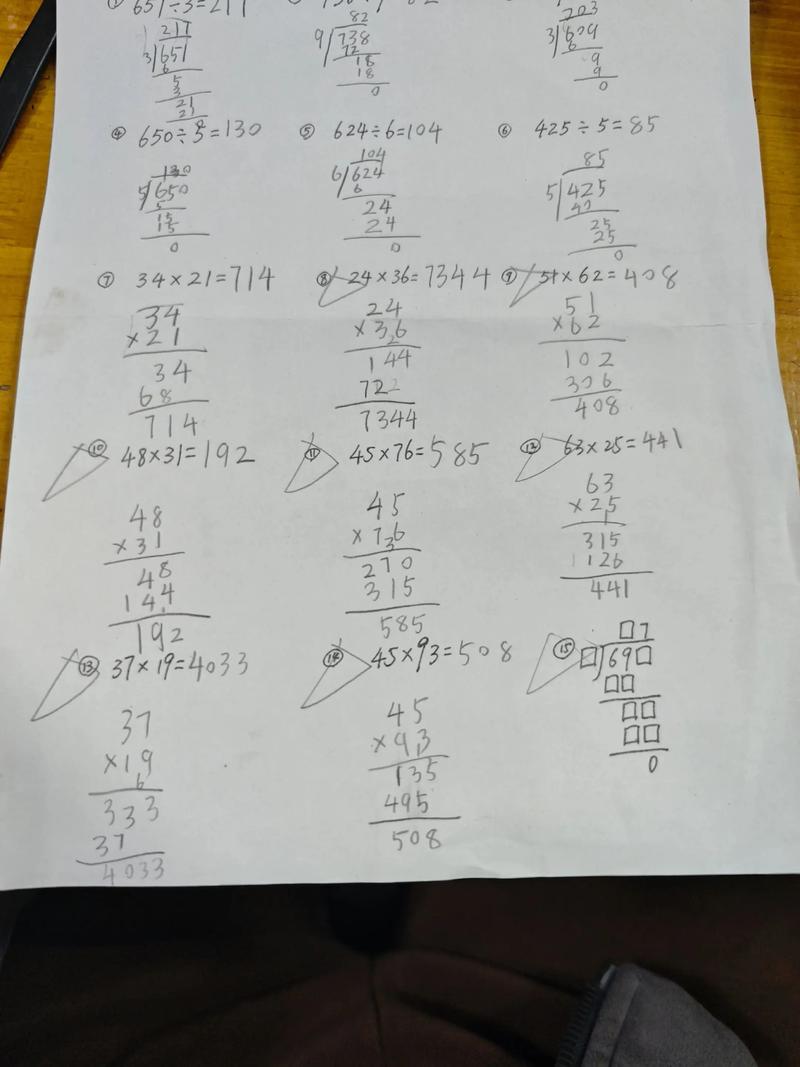 ① 651÷3=217
217
3 651
6
5
3
21
21
0
82
9 738
72
18
18
0
203
3 609
6
9
9
0
④ 650÷5=130
130
5 650
5
15
15
0
⑤ 624÷6=104
104
6 624
6
24
24
0
⑥ 425÷5=85
85
5 425
40
25
25
0
⑦ 34×21=714
34
×21
34
68
714
⑧ 24×36=7344
24
×36
2
144
722
7344
⑨ 51×62=408
51
×62
102
306
408
⑩ 48×31=192
48
×31
48
144
192
⑪ 45×76=585
45
×76
3
270
315
585
⑫ 63×25=441
63
×25
1
315
126
441
⑬ 37×19=4033
37
×19
6
333
37
4033
⑭ 45×93=508
45
×93
1
135
495
508
⑮ □7
□ 69□
□□
□□
□□
0